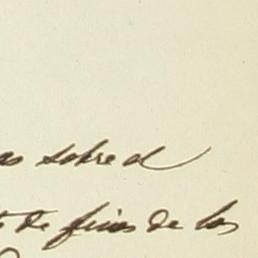 as sobre el
de fines de los